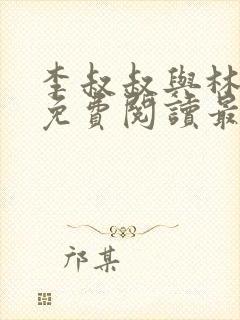 李叔叔與林
免費閱讀最
邝某